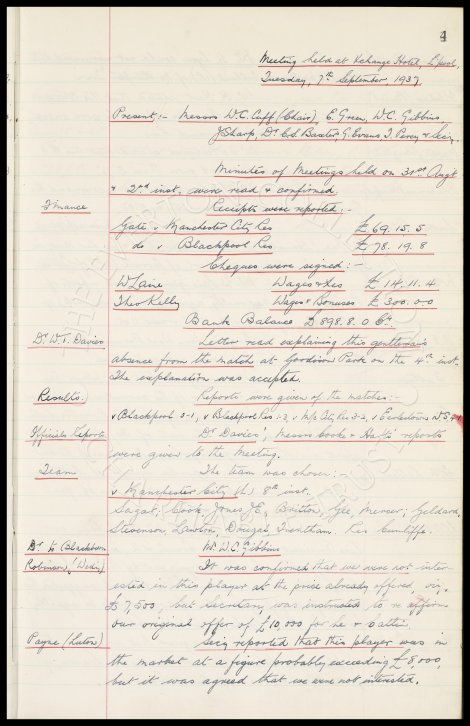 4
Meeting held at Xchange Hotel, L'pool,
Tuesday, 7th September, 1937
Present:- Messrs W.C. Cuff (Chair), E. Green, W.C. Gibbins
J Sharp, Dr. C.S. Baxter G. Evans T. Percy & Secy.
Minutes of Meetings held on 31st Augt
& 2nd inst. were read & confirmed.
Finance
Receipts were reported:-
Gate v Manchester City Res £69.15.5
do v Blackpool Res £78.19.8
Cheques were signed:-
W Lane Wages & Ies £ 14.11.4
Theo Kelly Wages & Bonuses £ 300.0.0
Bank Balance £898.8.0 Cr.
Dr. W.T. Davies
Letter read explaining this gentleman's
absence from the match at Goodison Park on the 4th inst.
The explanation was accepted.
Results.
Reports were given of the matches:-
v Blackpool 3-1, v Blackpool Res 1-3, v M/c City Res 3-2, v Eccleston W.S. 4-1
Officials Reports
Dr Davies', Messrs Cooke & Haft's reports
were given to the Meeting.
Team
The team was chosen:-
v Manchester City (h) 8th inst.
Sagar, Cook, Jones J.E., Britton, Gee, Mercer, Geldard,
Stevenson Lawton, Trentham. Res Cunliffe.
Dr. to Blackburn
Mr. W.C. Gibbins
Robinson, (Wedny)
It was confirmed that we were not inter-
ested in this player at the price already offered, viz,
£7,500, but Secretary was instructed to re affirm
our original offer of £10,000 for he &
Payne (Luton)
Secy reported that this player was in
the market at a figure probably exceeding £8,000,
but it was agreed that we were not interested.